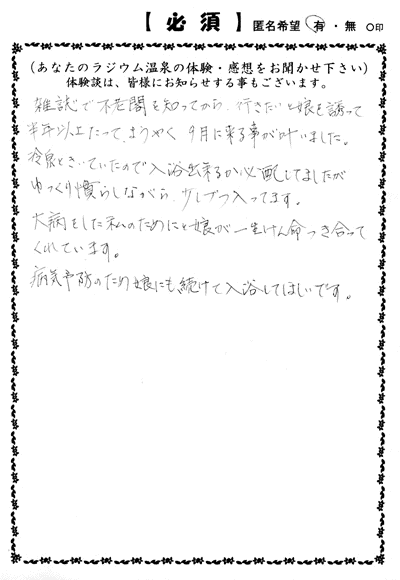 【必須】 匿名希望 有・無 ○印
(あなたのラジウム温泉の体験・感想をお聞かせ下さい)
体験談は、皆様にお知らせする事もございます。
雑誌で不老閣を知ってから、行きたいと娘を誘って
半年以上たって、ようやく9月に来る事が叶いました。
冷泉ときいていたので入浴出来るか心配してましたが
ゆっくり慣らしながら、少しづつ入ってます。
大病をした私のためにと娘が一生けん命つき合って
くれています。
病気予防のため娘にも続けて入浴してほしいです。